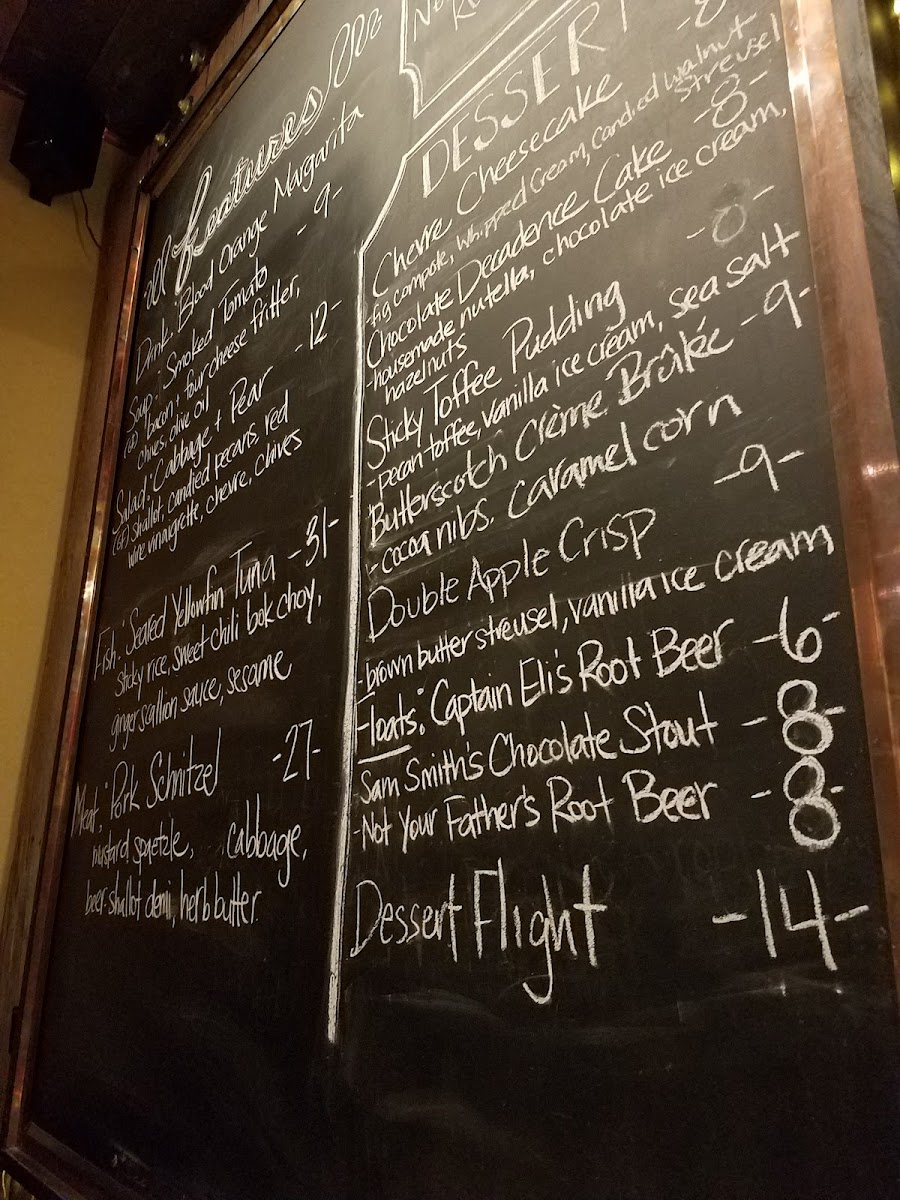 features
Drink: Blood Orange Margarita
-9-
Soup: Smoked Tomato
bacon + four cheese fritter,
chives, olive oil
Salad: Cabbage + Pear -12-
(GF) shallot, candied pecans, red
wine vinaigrette, chevre, chives
Fish: Seared Yellowfin Tuna -31-
Sticky rice, sweet chili bok choy,
ginger scallion sauce, sesame
Meat: Pork Schnitzel -27-
mustard spaetzle, cabbage,
beer-shallot demi, herb butter
DESSERT
Chevre Cheesecake -8-
-fig compote, whipped cream, candied walnut
streusel
Chocolate Decadence Cake -8-
-housemade nutella, chocolate ice cream,
hazelnuts
Sticky Toffee Pudding -8-
-pecan toffee, vanilla ice cream, sea salt
Butterscotch Crème Brûlée -9-
-cocoa nibs, caramel corn
Double Apple Crisp -9-
-brown butter streusel, vanilla ice cream
Floats: Captain Eli's Root Beer -6-
Sam Smith's Chocolate Stout -8-
-Not Your Father's Root Beer -8-
Dessert Flight -14-